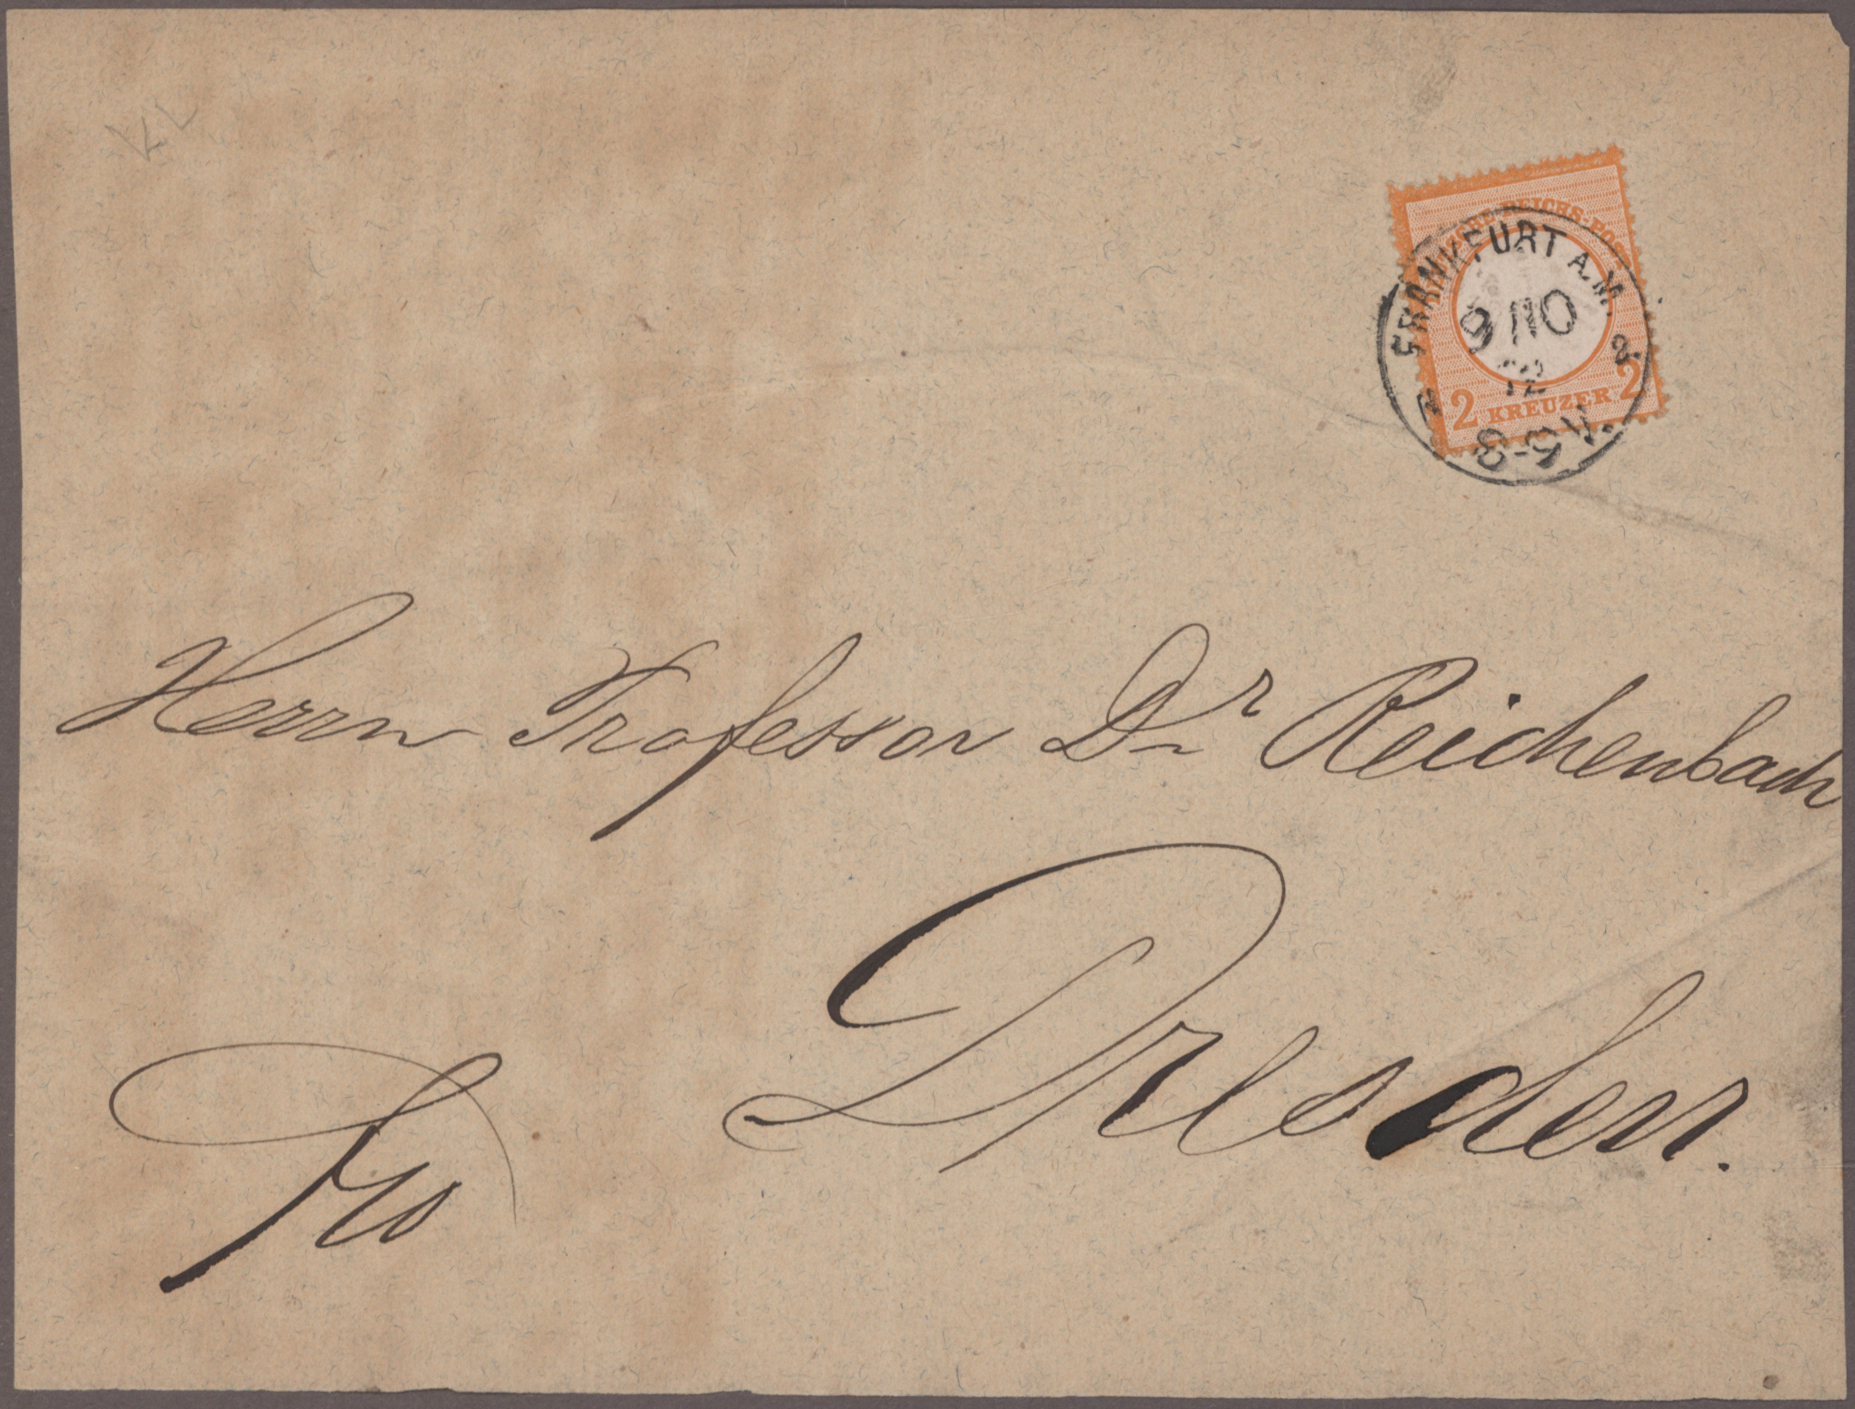 DEUTSCHE REICHS-POST
FRANKFURT A.M.
9/10
72
3-5N.
2 KREUZER 2
Herrn Professor Dr Reichenbach
Dresden.
fro